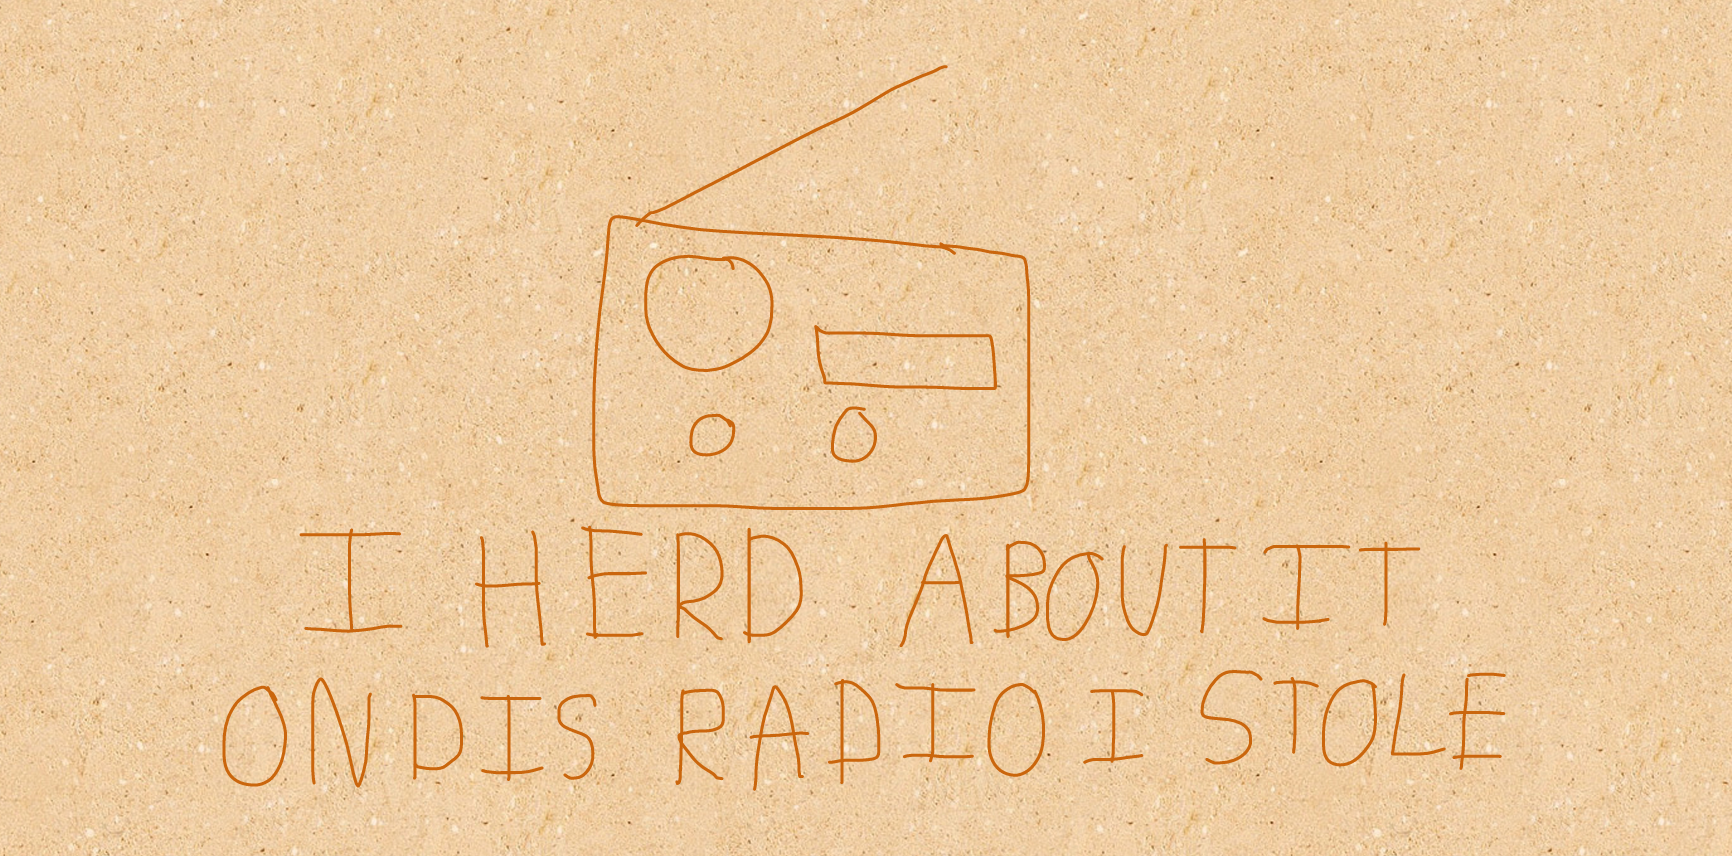 I HERD ABOUT IT
ON DIS RADIO I STOLE